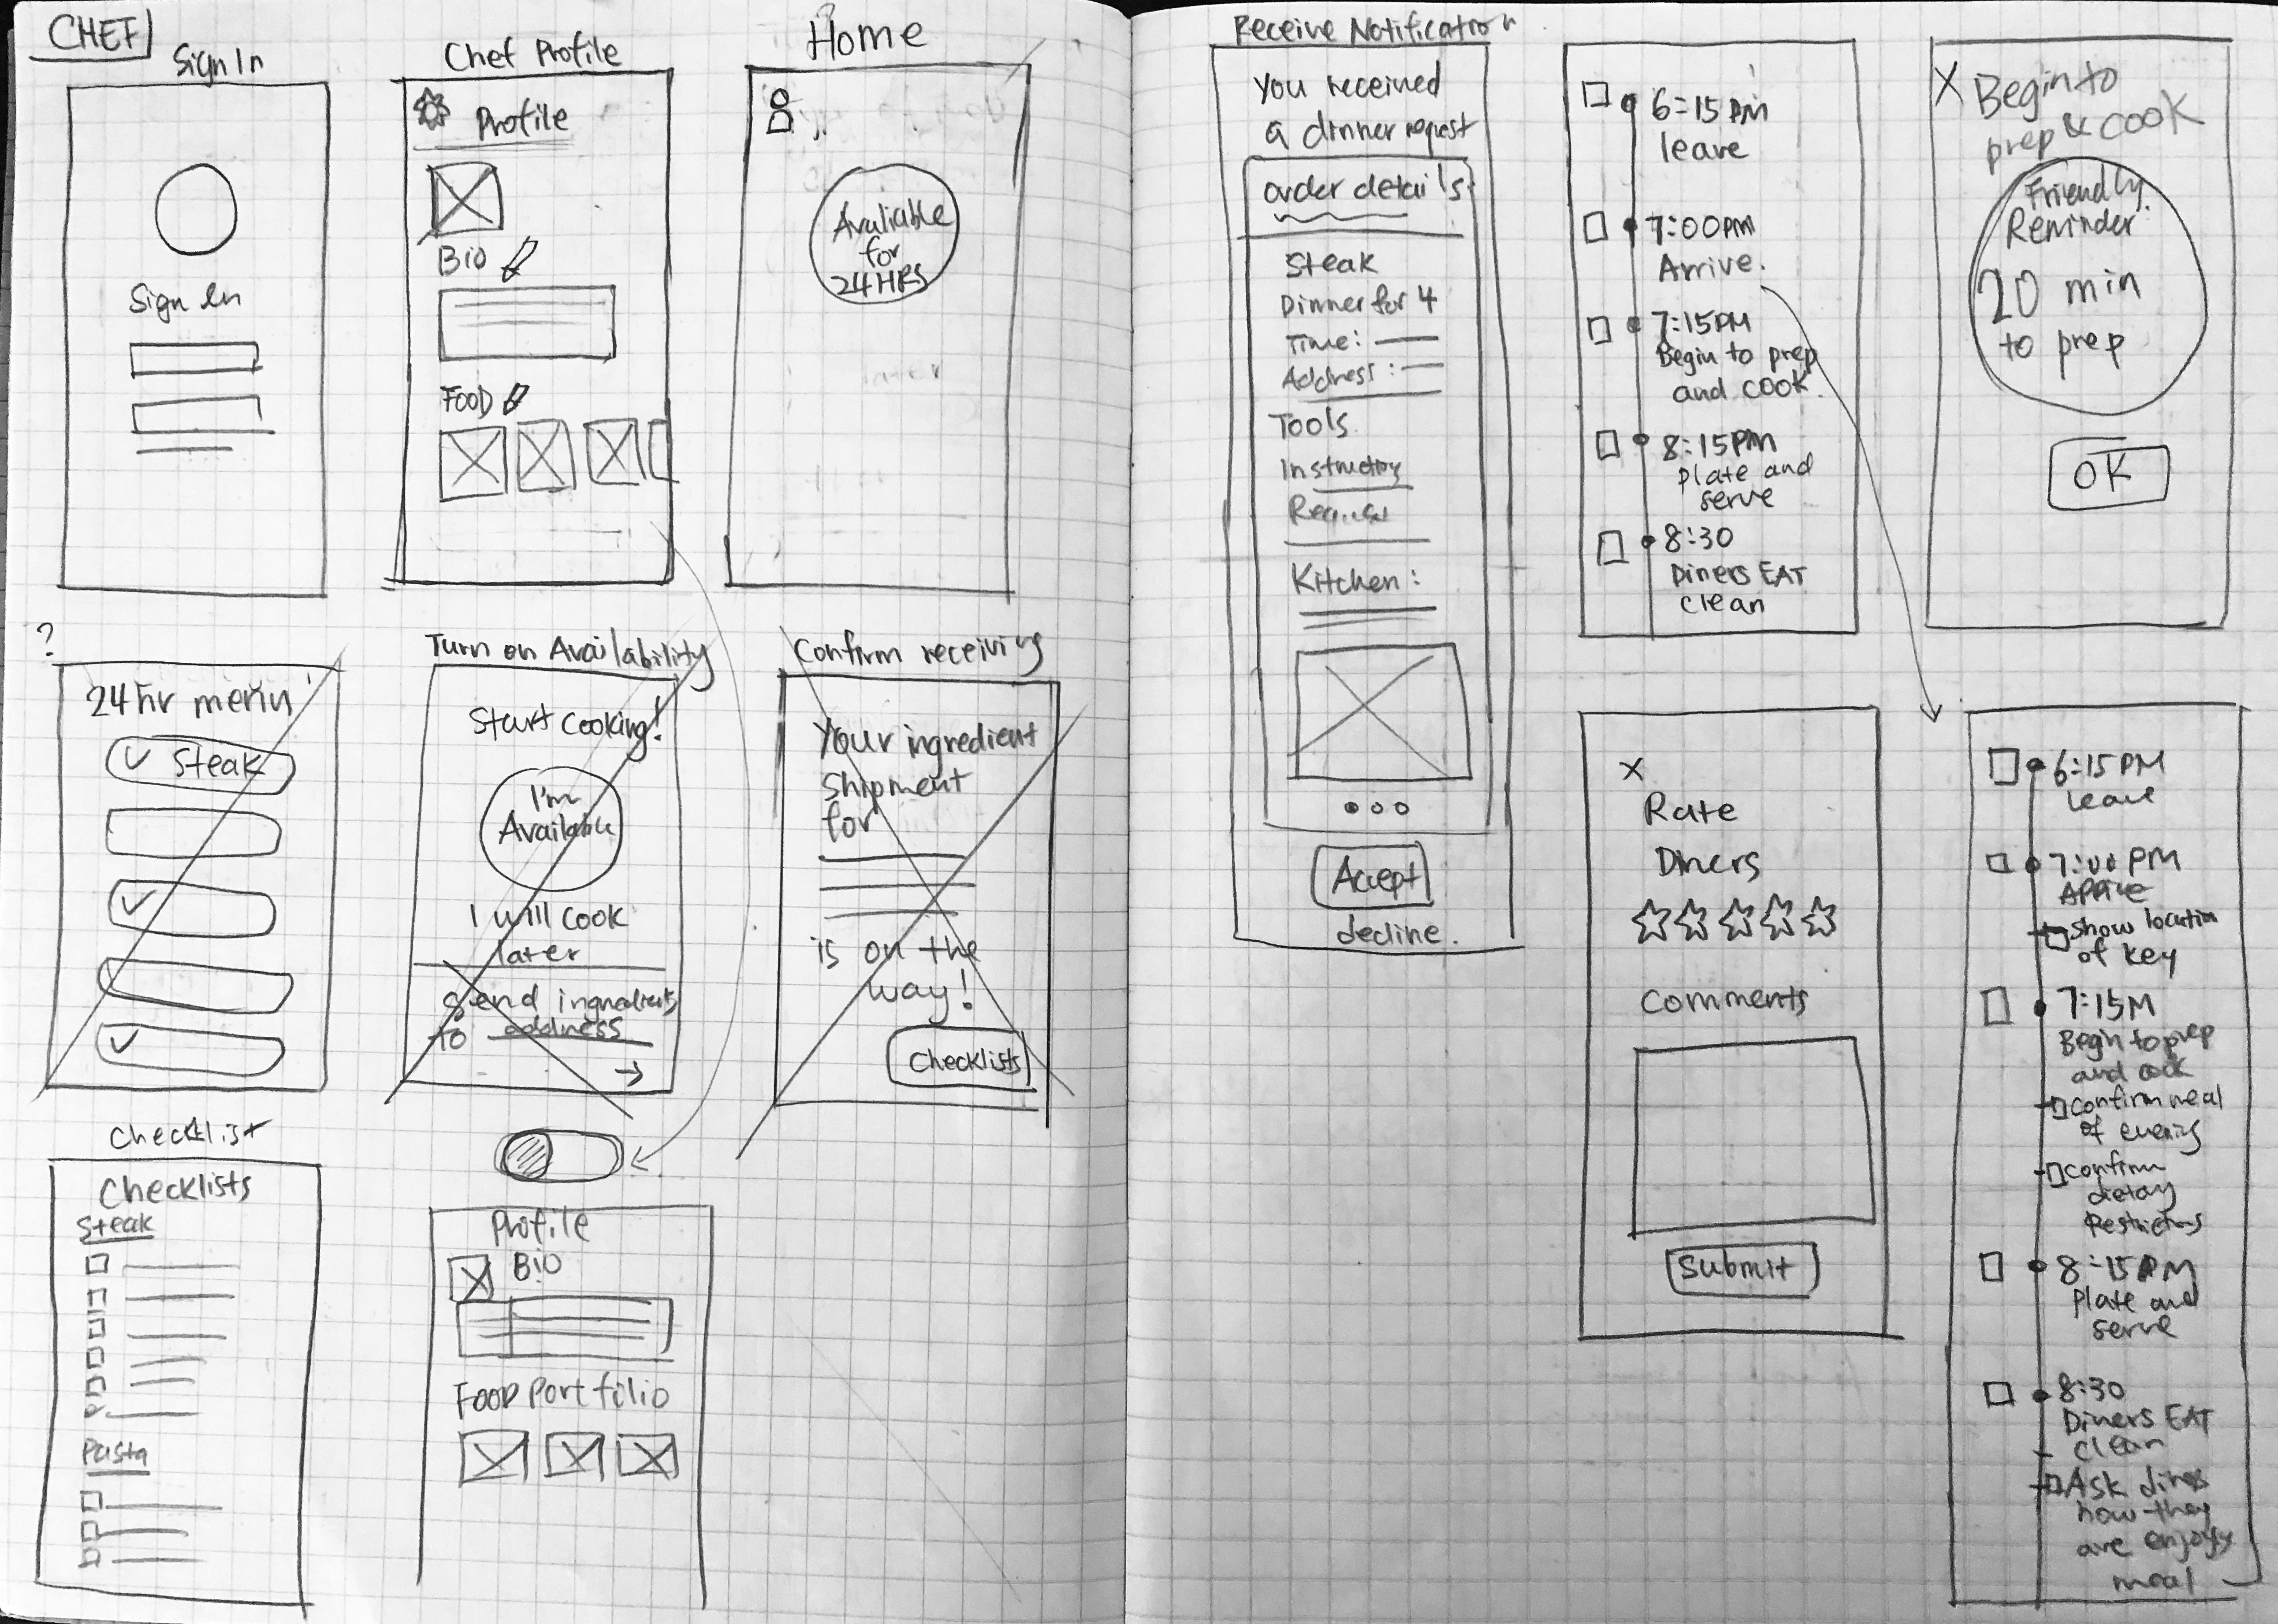 CHEF
Sign In
Sign In
Chef Profile
Profile
Bio
FOOD
Home
Avaliable
for
24 HRS
?
24 hr menu
✓ Steak
✓
✓
Turn on Availability
Start cooking!
I'm
Available
I will cook
later
Send ingredients
to address
→
Confirm receiving
Your ingredient
shipment
for
is on the
way!
Checklists
Checklist
Checklists
Steak
Pasta
Profile
Bio
FOOD Portfilio
Receive Notification
You received
a dinner request
order details
Steak
Dinner for 4
Time:
Address:
Tools
Kitchen:
Accept
decline.
6:15 PM
leave
7:00PM
Arrive.
7:15PM
Begin to prep
and cook.
8:15PM
Plate and
serve
8:30
Diners EAT
clean
X Begin to
prep & cook
Friendly
Reminder:
20 min
to prep
OK
X
Rate
Diners
Comments
Submit
6:15 PM
leave
7:00 PM
Arrive
show location
of key
7:15M
Begin to prep
and cook
confirm meal
of evening
confirm
dietary
Restrictions
8:15PM
Plate and
serve
8:30
Diners EAT
clean
Ask diners
how they
are enjoyy
meal